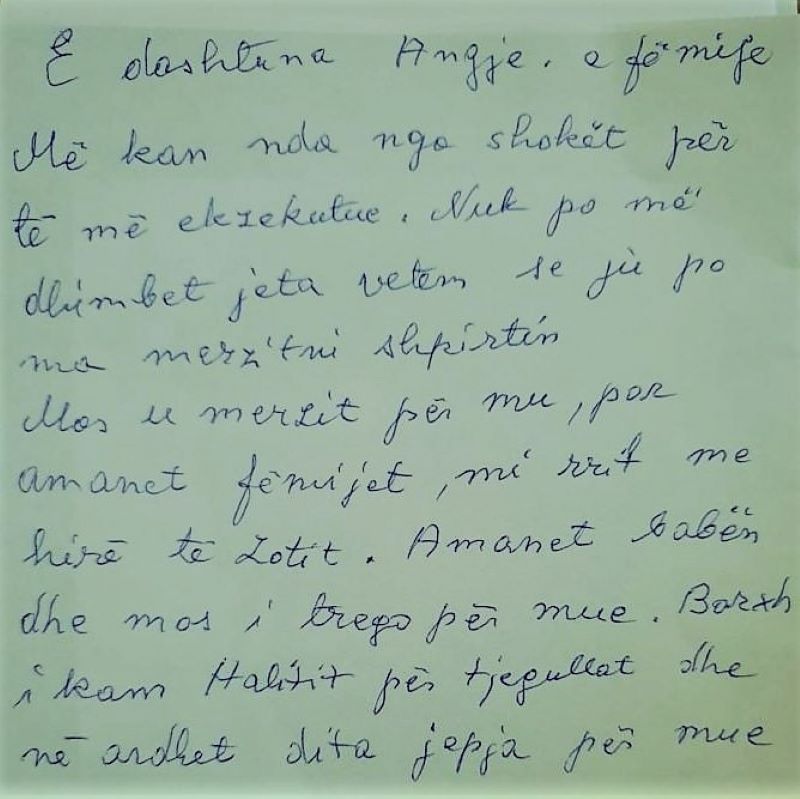 E dashtuna Angje. e fëmije
Më kan nda nga shokët për
të më ekzekutue. Nuk po më
dhimbet jeta vetëm se ju po
ma merzitni shpirtin
Mos u merzit për mu, por
amanet fëmijet, mi rrit me
hirë të Zotit. Amanet babën
dhe mos i trego për mue. Borxh
i kam Halitit për tjegullat dhe
në ardhet dita jepja për mue